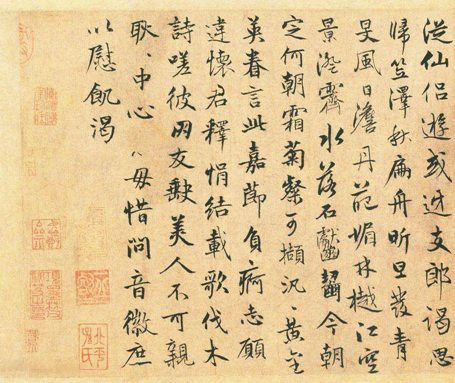 從仙侶遊或迓支郎謁思
歸笠澤秋扁舟昕旦發青
旻風日澹丹葩媚林樾江空
景澄霽水落石齴齶今朝
定何朝霜菊粲可擷汎〻黃金
英眷言此嘉節負痾志願
違懷君釋悁結載歌伐木
詩嗟彼朋友缺美人不可親
耿〻中心〻毋惜問音微庶
以慰飢渴